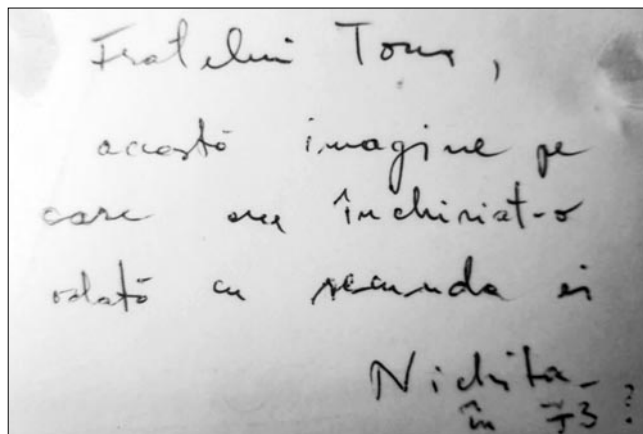 Fratelui Toma,
această imagine pe
care am închiriat-o
odată cu secunda ei
Nichita
în 73 ?